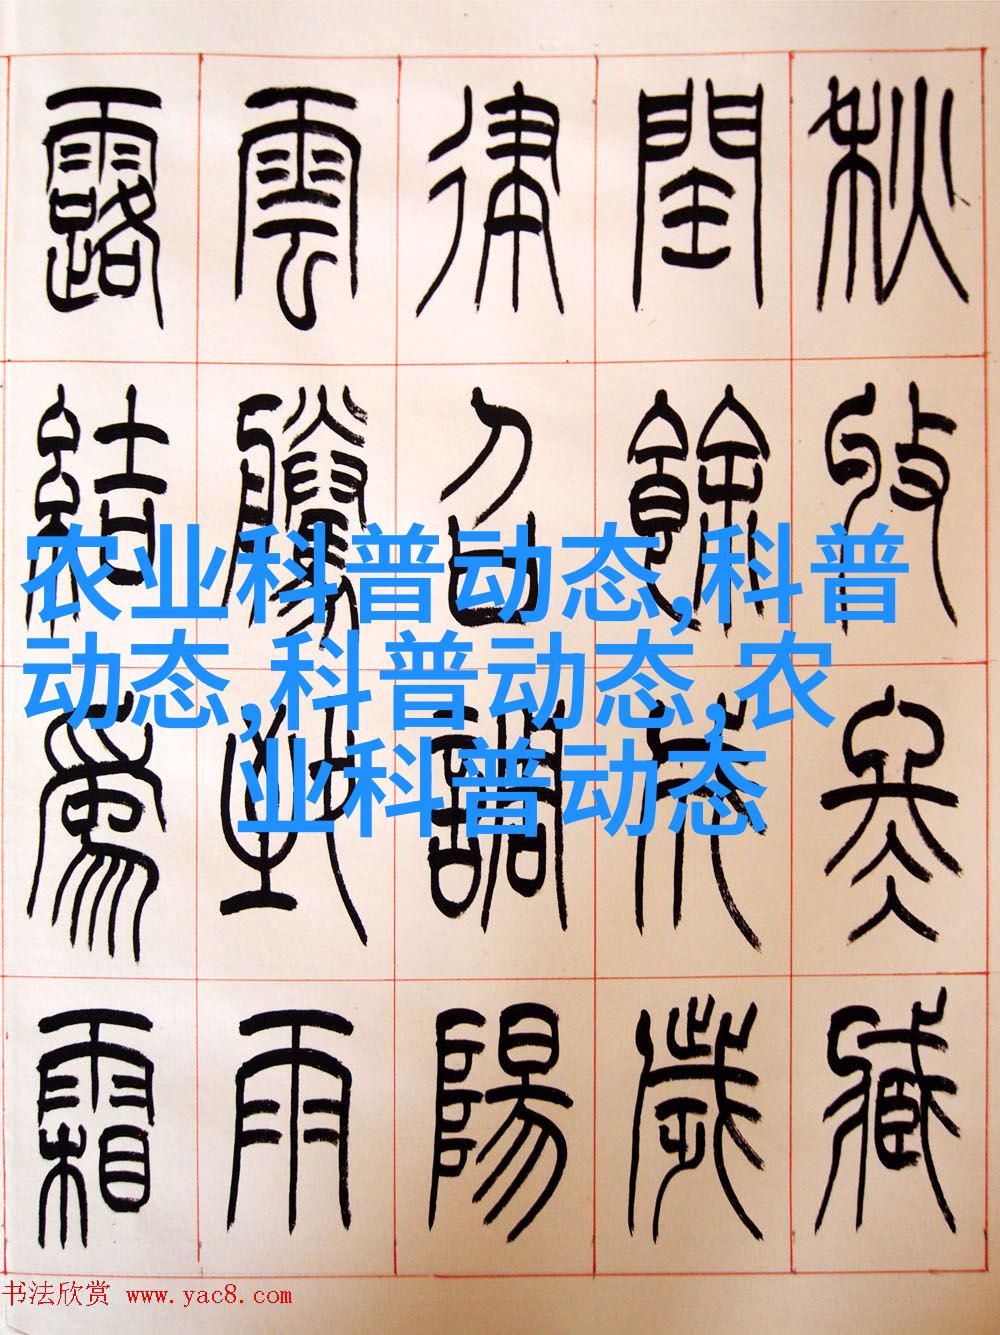 秋收冬臧
閏餘成歲
律召調陽
雲騰致雨
露結爲霜
农业科普动态,科普
动态,科普动态,农
业科普动态
书法欣赏 www.yac8.com